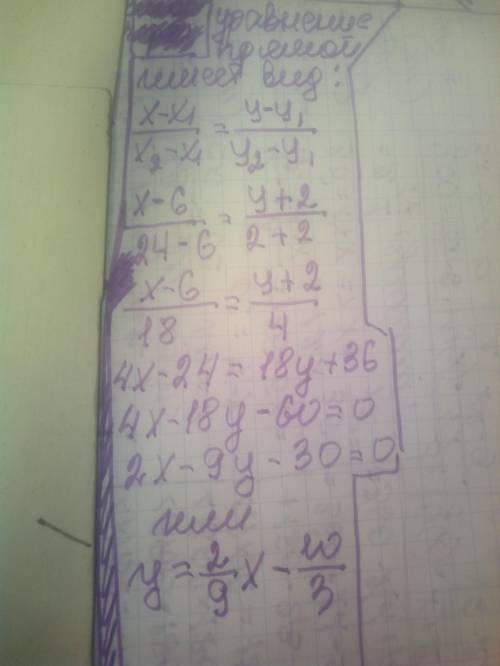 уравнение
прямой
имеет вид:
x-x₁/x₂-x₁ = y-y₁/y₂-y₁
x-6/24-6 = y+2/2+2
x-6/18 = y+2/4
4x-24=18y+36
4x-18y-60=0
2x-9y-30=0
или
y=2/9x-10/3